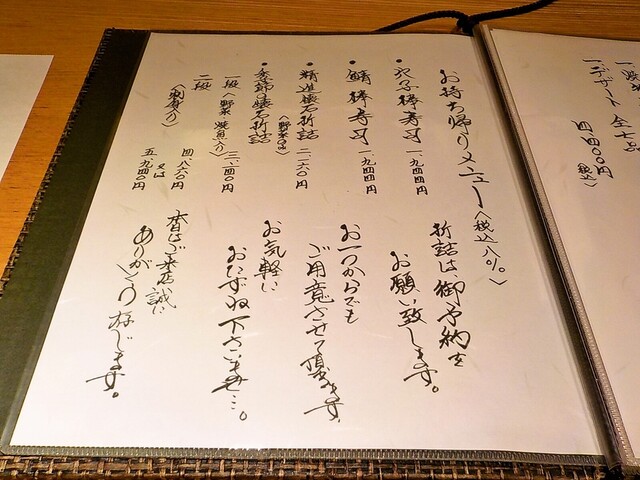 デザート
四四〇〇円
〈税込〉
お持ち帰りメニュー〈税込入り。〉
・穴子棒寿司 一、九四四円
・鯖棒寿司 一、九四四円
・精進懐石折詰 二、一六〇円
〈野菜のみ〉
・季節の懐石折詰
一段〈野菜 焼魚入り〉 三、二四〇円
二段 四、八六〇円
又は
〈刺身入り〉 五、九四〇円
折詰は、御予約を
お願い致します。
お一つからでも
ご用意させて頂きます。
お気軽に
おたずね下さいませ…。
本日はご来店誠に
ありがとう存じます。